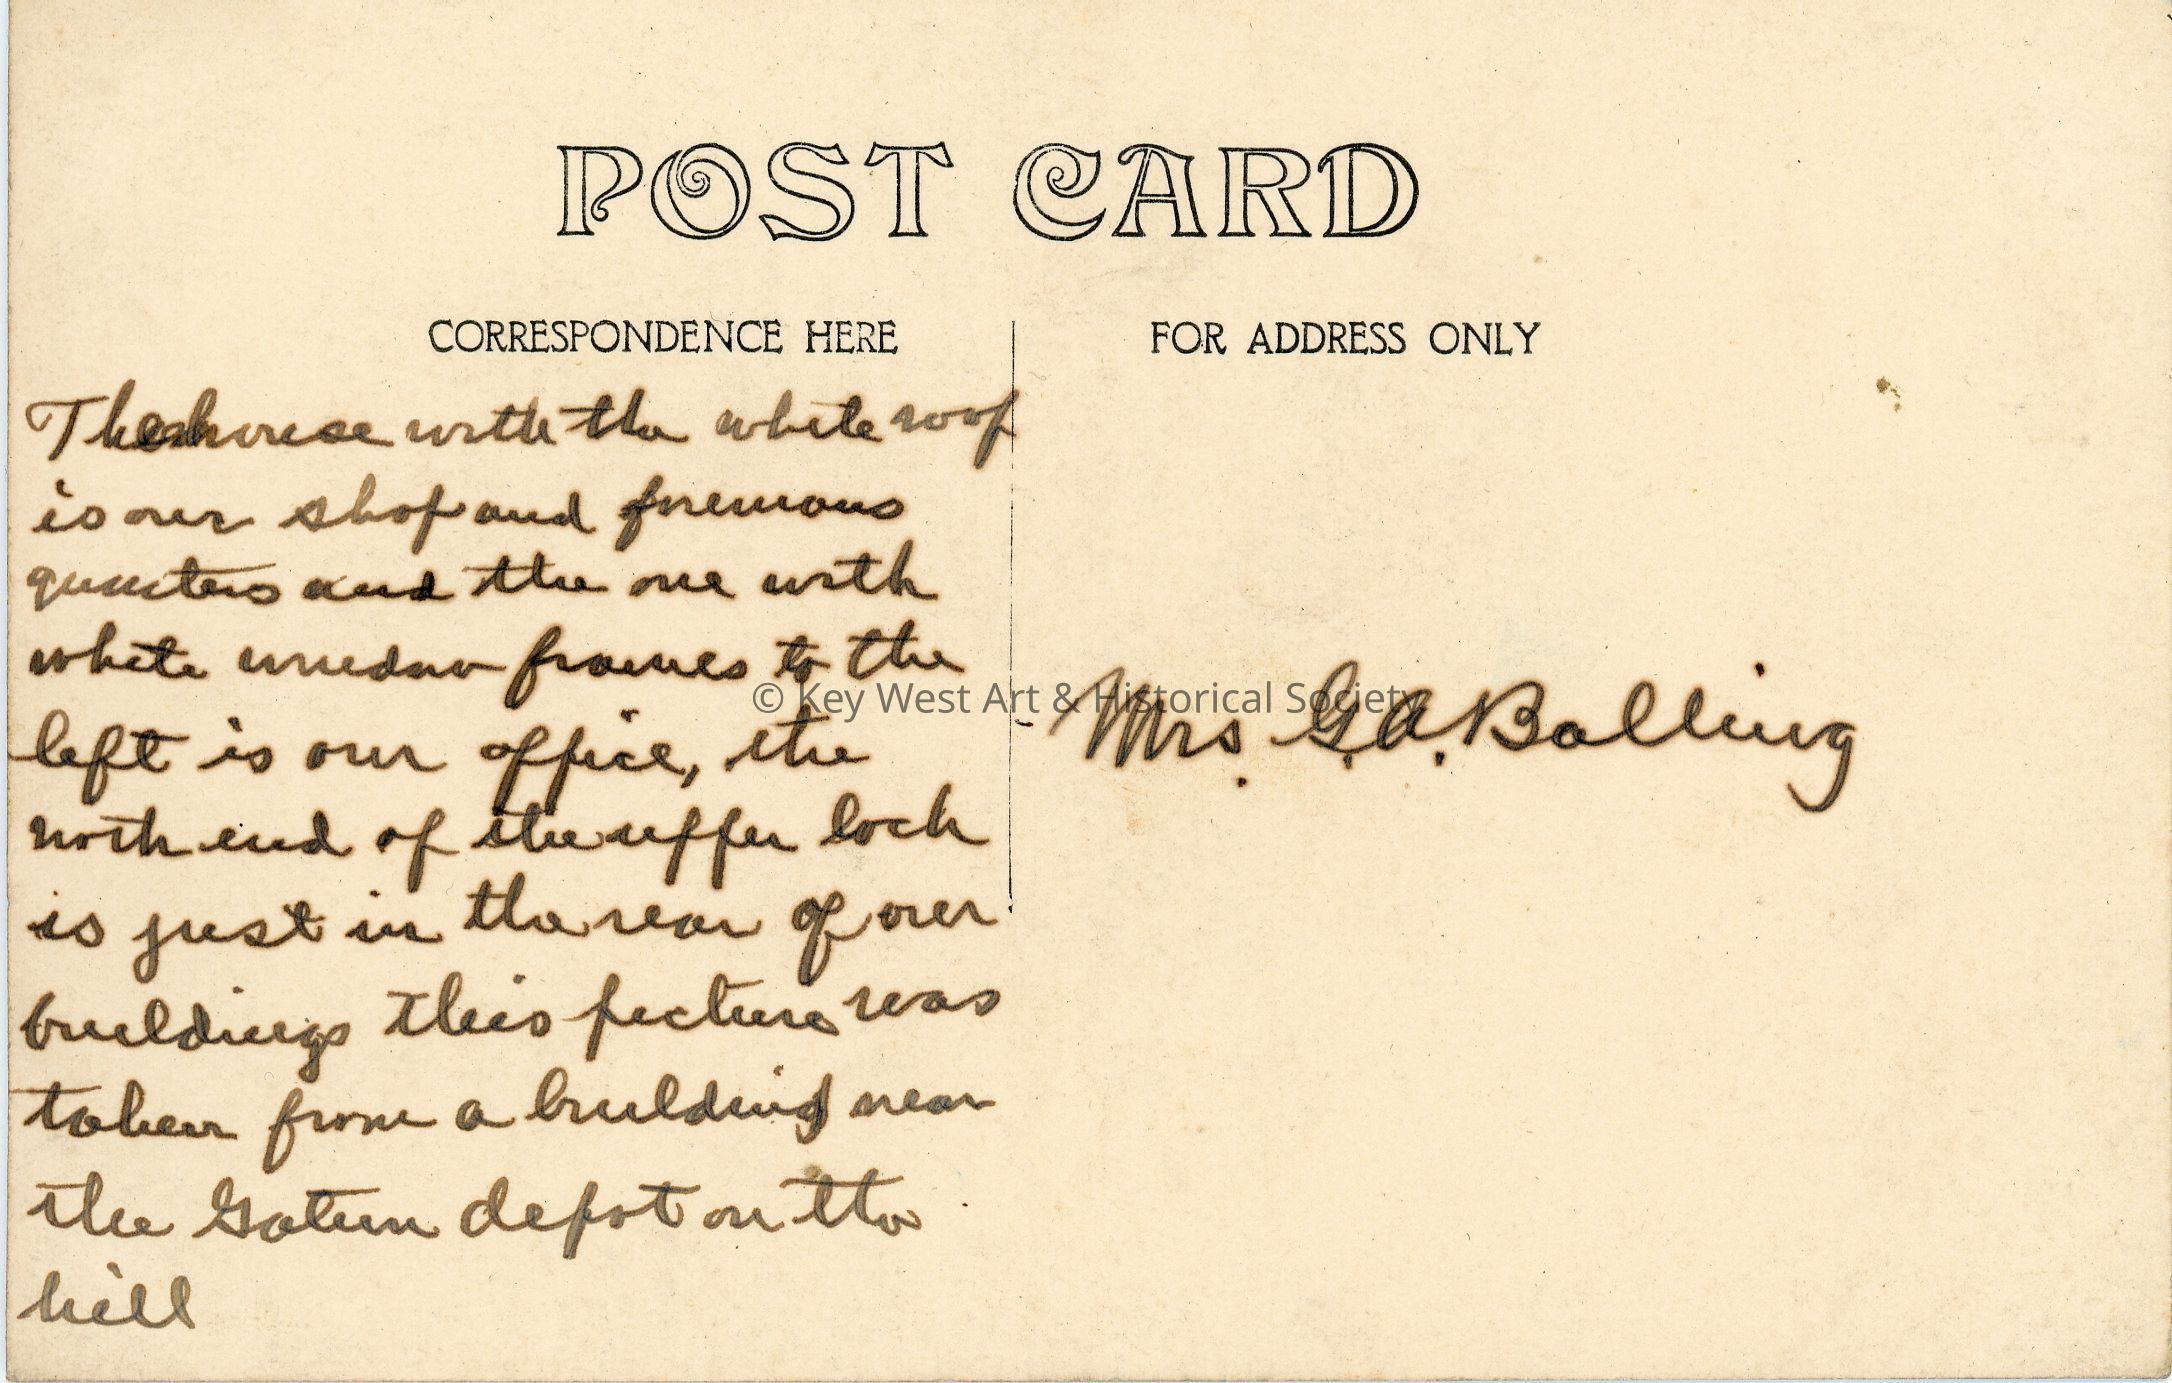 POST CARD
CORRESPONDENCE HERE
FOR ADDRESS ONLY
The house with the white roof
is our shop and foremans
quarters and the one with
white window frames to the
left is our office, the
north end of the upper lock
is just in the rear of our
buildings this picture was
taken from a building near
the Gatun depot on the
hill
Mrs. G.A. Bolling
© Key West Art & Historical Society